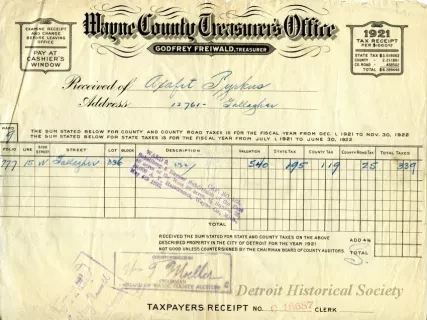 Wayne County Treasurer's Office
GODFREY FREIWALD, TREASURER
EXAMINE RECEIPT AND CHANGE BEFORE LEAVING OFFICE
PAY AT CASHIER'S WINDOW
1921
TAX RECEIPT
Received of
Address 12761- Gallagher
WARD 9
THE SUM STATED BELOW FOR COUNTY AND COUNTY ROAD TAXES IS FOR THE FISCAL YEAR FROM DEC. 1, 1921 TO NOV. 30, 1922
THE SUM STATED BELOW FOR STATE TAXES IS FOR THE FISCAL YEAR FROM JULY 1, 1921 TO JUNE 30, 1922
FOLIO LINE SIDE STREET STREET LOT BLOCK DESCRIPTION VALUATION STATE TAX COUNTY TAX COUNTY ROAD TAX TOTAL TAXES
777 15 W Gallagher 336 540 195 119 25 339
RECEIVED THE SUM STATED FOR STATE AND COUNTY TAXES ON THE ABOVE
DESCRIBED PROPERTY IN THE CITY OF DETROIT FOR THE YEAR 1921
NOT GOOD UNLESS COUNTERSIGNED BY THE CHAIRMAN BOARD OF COUNTY AUDITORS
ADD 4%
TOTAL
Detroit Historical Society
TAXPAYERS RECEIPT NO. CLERK